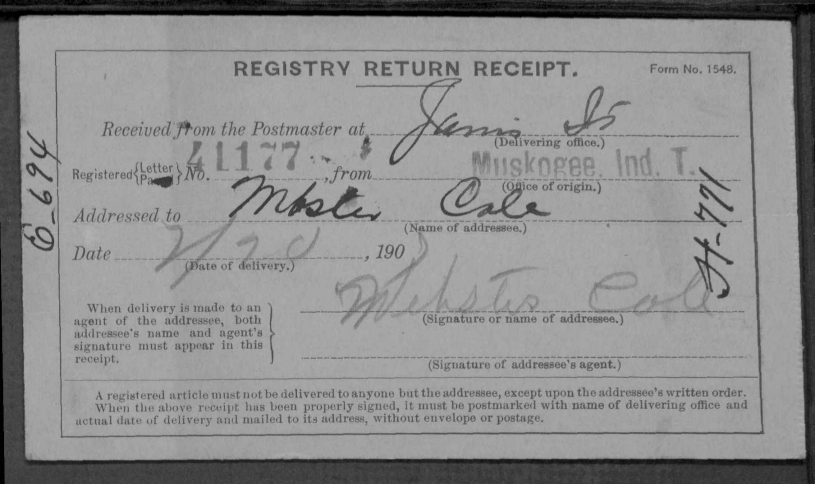 REGISTRY RETURN RECEIPT. Form No. 1548.
Received from the Postmaster at
(Delivering office.)
41177
Muskogee, Ind. T.
Registered {Letter Parcel} No. , from
(Office of origin.)
Addressed to Webster Cole
(Name of addressee.)
Date , 190
(Date of delivery.)
Webster Cole
(Signature or name of addressee.)
When delivery is made to an
agent of the addressee, both
addressee's name and agent's
signature must appear in this
receipt.
(Signature of addressee's agent.)
A registered article must not be delivered to anyone but the addressee, except upon the addressee's written order.
When the above receipt has been properly signed, it must be postmarked with name of delivering office and
actual date of delivery and mailed to its address, without envelope or postage.
6-694
H-771